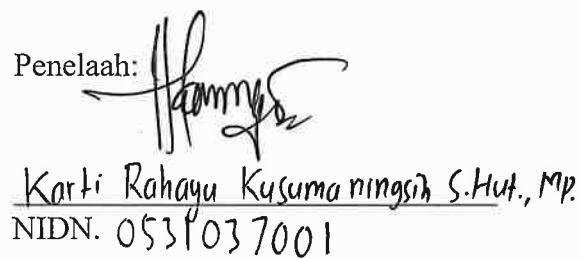 Penelaah:
Karti Rahayu Kusumaningsih S.Hut., MP.
NIDN. 0531037001